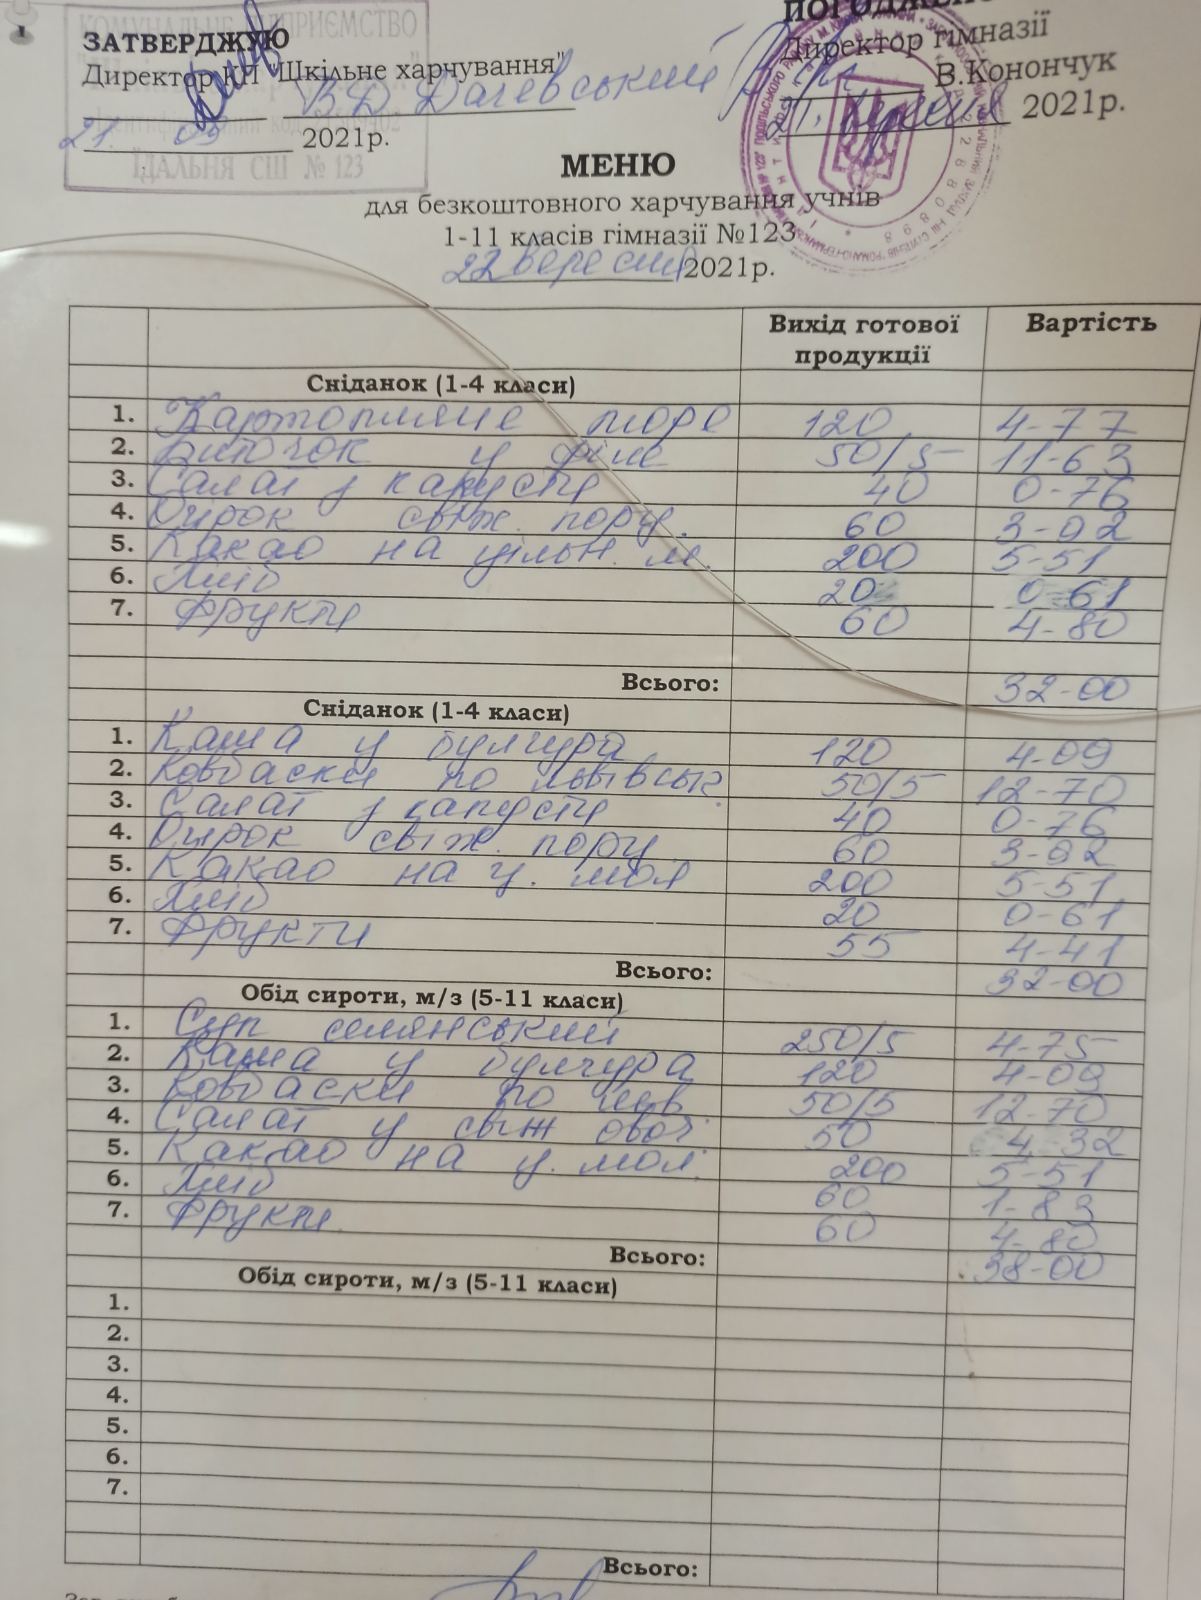 КОМУНАЛЬНЕ ПІДПРИЄМСТВО
ЗАТВЕРДЖУЮ
Директор КП "Шкільне харчування"
21. 09 2021р.
ЇДАЛЬНЯ СШ № 123
ПОГОДЖЕНО
Директор гімназії
В.Конончук
21. вересня 2021р.
МЕНЮ
для безкоштовного харчування учнів
1-11 класів гімназії №123
22 вересня 2021р.
Вихід готової продукції Вартість
Сніданок (1-4 класи)
1. Картопляне пюре 120 4-77
2. Биточок з філе 50/5 11-63
3. Салат з капусти 40 0-76
4. Огірок свіж. порц. 60 3-92
5. Какао на цільн. м. 200 5-51
6. Хліб 20 0-61
7. Фрукти 60 4-80
Всього: 32-00
Сніданок (1-4 класи)
1. Каша з булгура 120 4-09
2. Ковбаски по львівськ. 50/5 12-70
3. Салат з капусти 40 0-76
4. Огірок свіж. порц. 60 3-92
5. Какао на ц. мол 200 5-51
6. Хліб 20 0-61
7. Фрукти 55 4-41
Всього: 32-00
Обід сироти, м/з (5-11 класи)
1. Суп селянський 250/5 4-75
2. Каша з булгура 120 4-09
3. Ковбаски по льв 50/5 12-70
4. Салат з свіж овоч. 50 4-32
5. Какао на ц. мол. 200 5-51
6. Хліб 60 1-83
7. Фрукти. 60 4-80
Всього: 38-00
Обід сироти, м/з (5-11 класи)
1.
2.
3.
4.
5.
6.
7.
Всього: